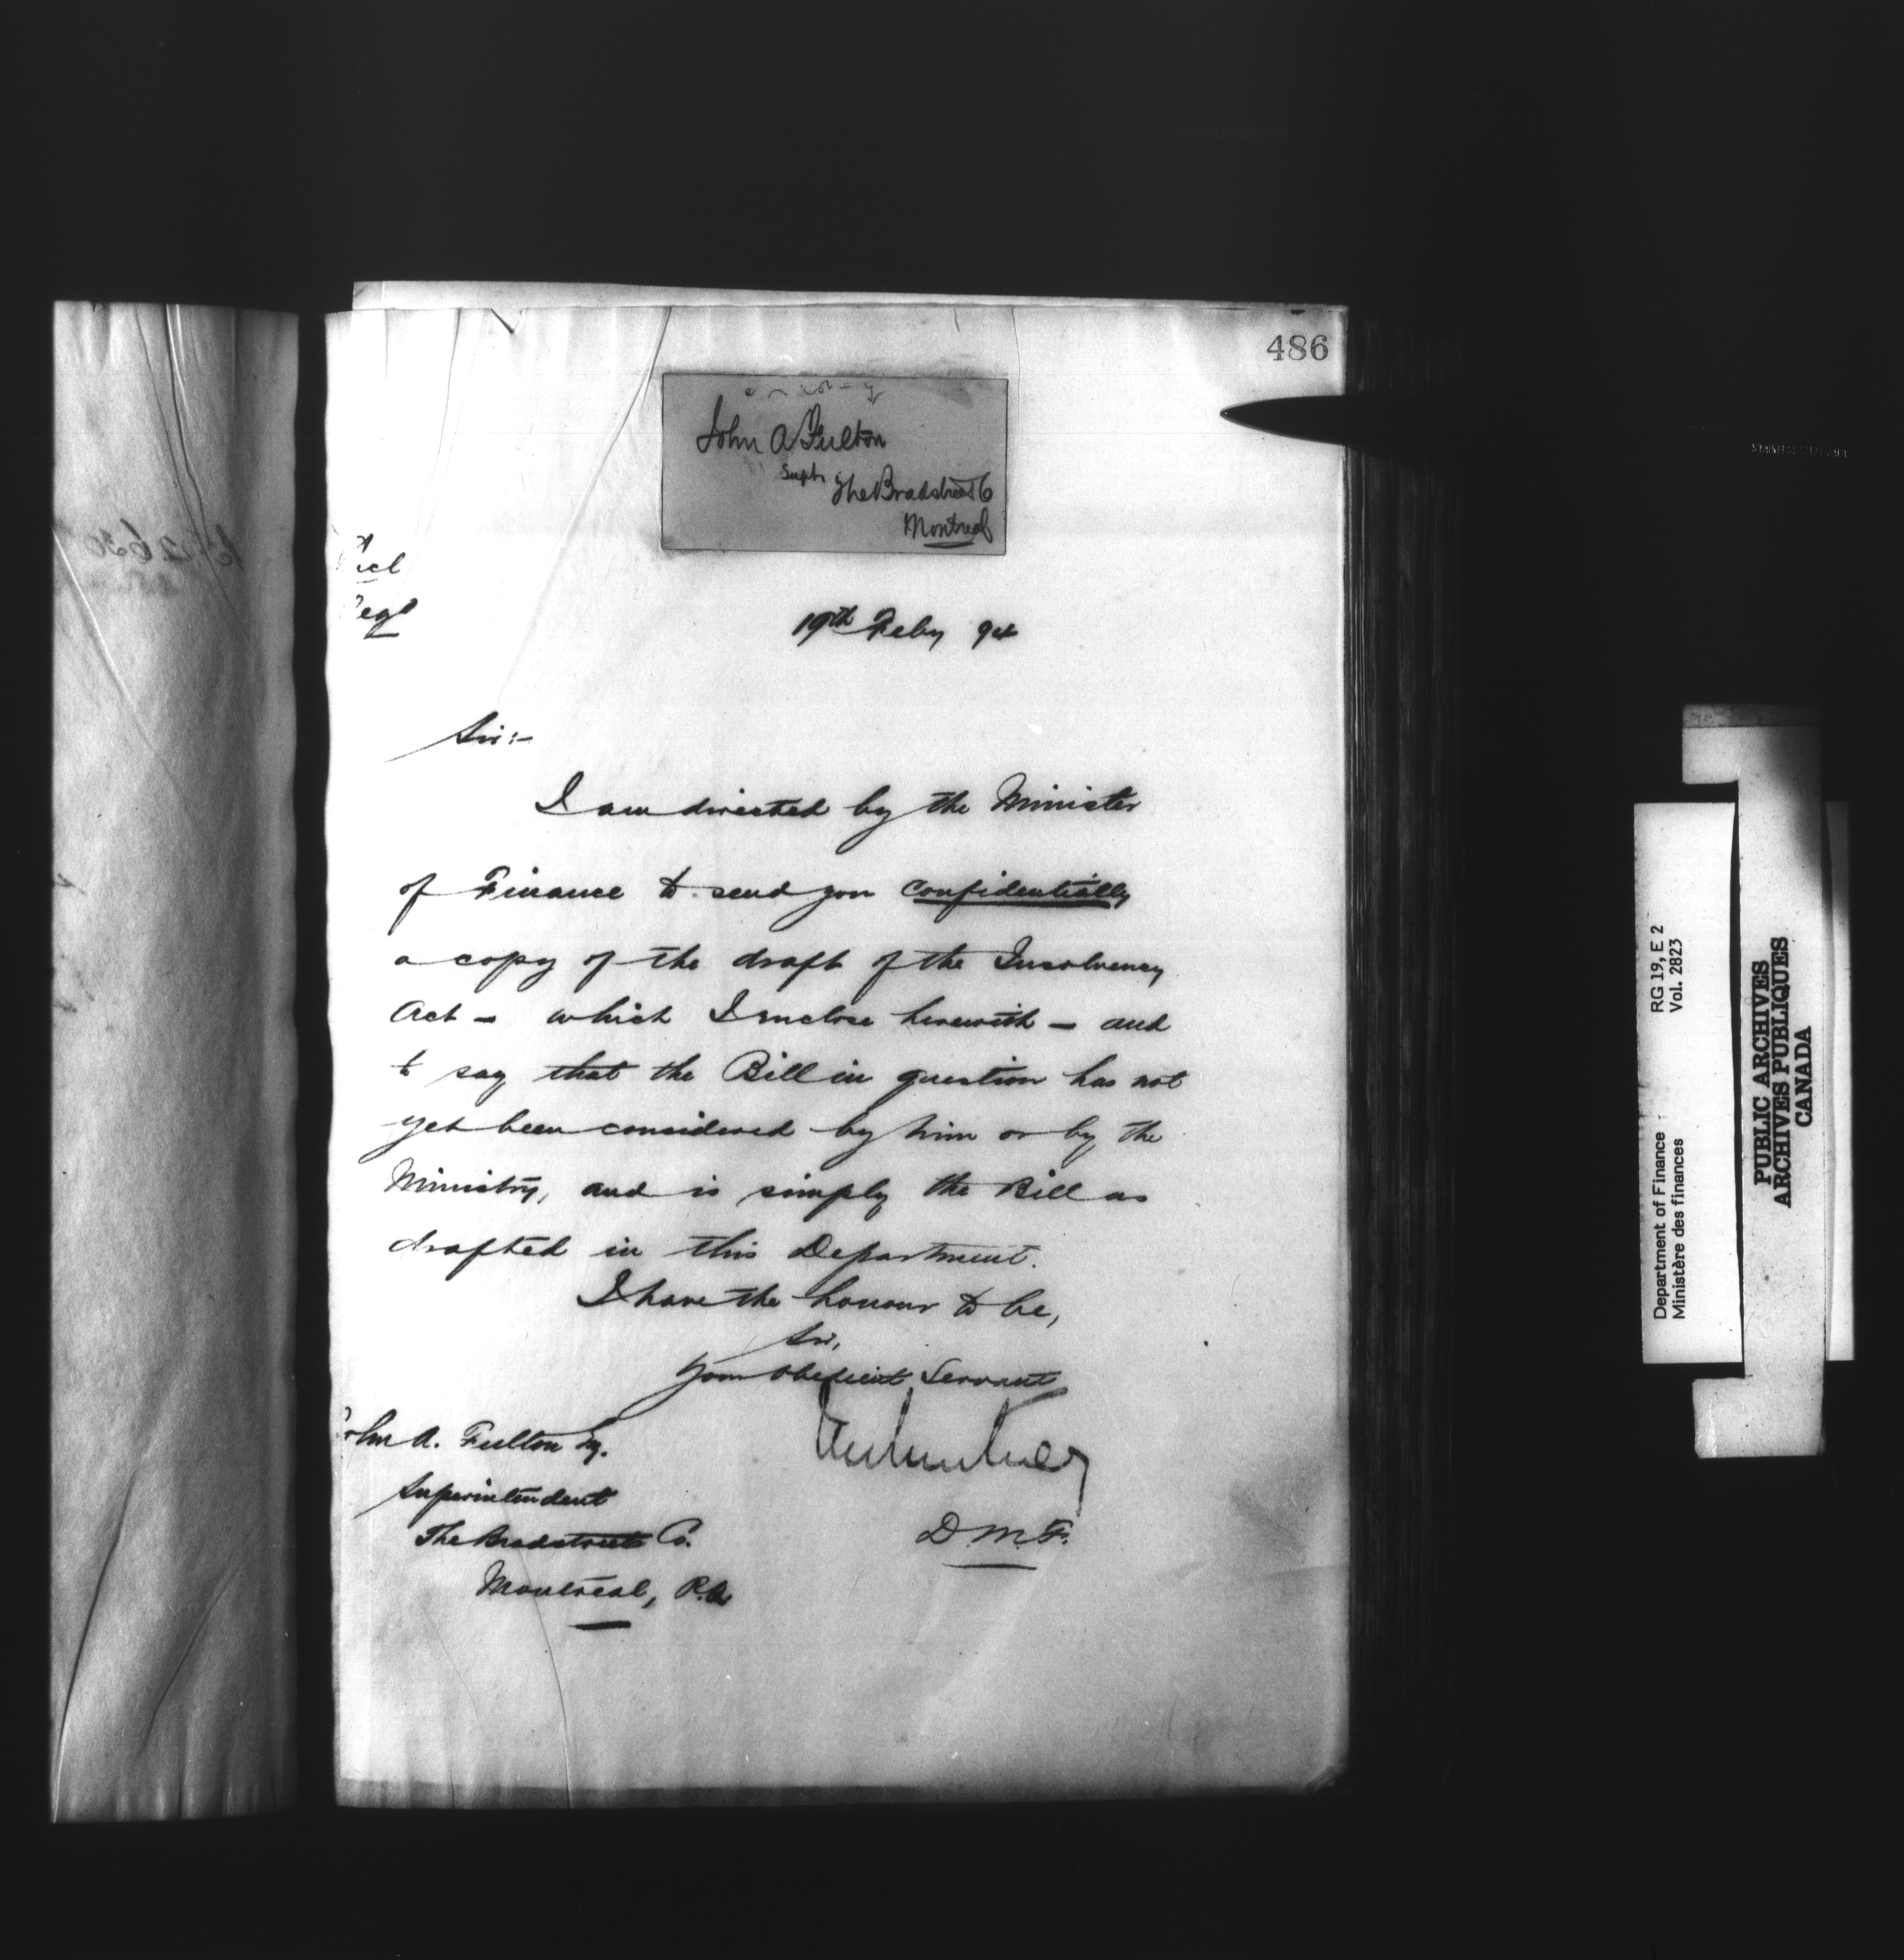 486
John A Fulton
Supt
The Bradstreet Co
Montreal
19th Feby 94
Sir:-
I am directed by the Minister
of Finance to send you Confidentially
a copy of the draft of the Insolvency
Act - which I enclose herewith - and
to say that the Bill in question has not
yet been considered by him or by the
Ministry, and is simply the Bill as
drafted in this Department.
I have the honour to be,
Sir,
Your obedient Servant
D.M.F.
John A. Fulton Esq.
Superintendent
The Bradstreet Co.
Montreal, P.Q.
Department of Finance RG 19, E 2
Ministère des finances Vol. 2823
PUBLIC ARCHIVES
ARCHIVES PUBLIQUES
CANADA